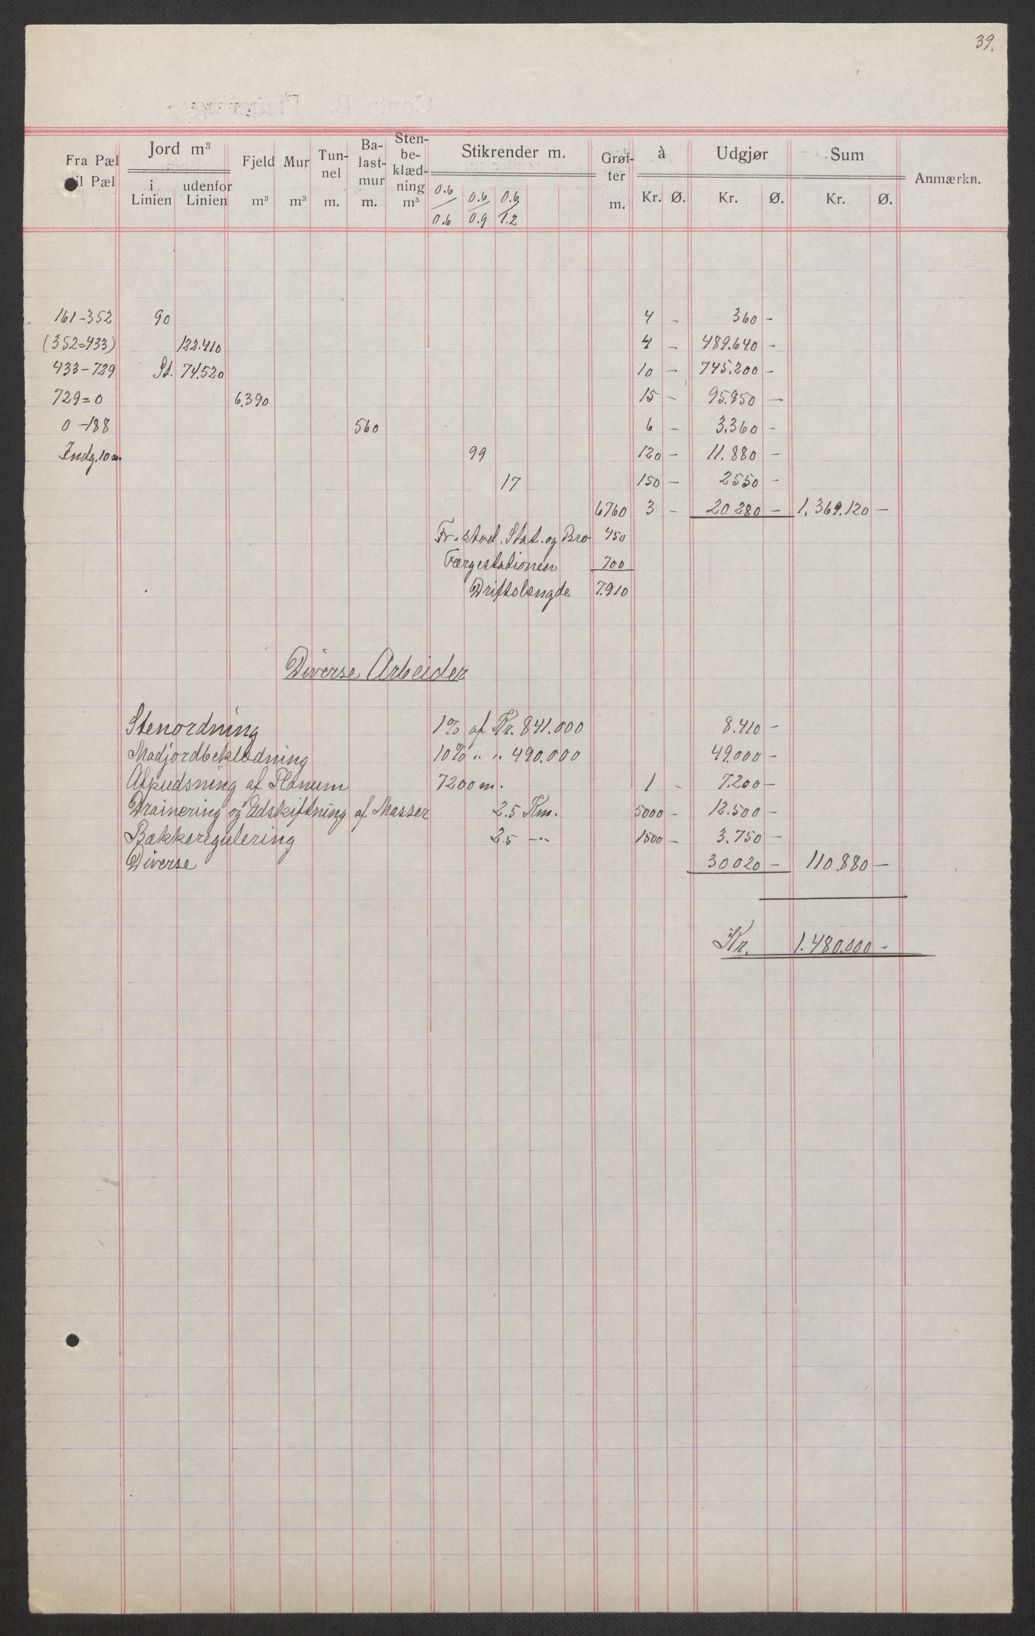 39.
Fra Pæl til Pæl | Jord m³ i Linien | udenfor Linien | Fjeld m³ | Mur m³ | Tunnel m. | Ballastmur m. | Stenbeklædning m³ | Stikrender m. 0.6/0.6 | 0.6/0.9 | 0.6/1.2 | Grøfter m. | à Kr. Ø. | Udgjør Kr. Ø. | Sum Kr. Ø. | Anmærkn.
161-352 90 4 - 360 -
(352=433) 122.410 4 - 489.640 -
433-729 St. 74.520 10 - 745.200 -
729=0 6.390 15 - 95.850 -
0-188 560 6 - 3.360 -
Indg. 10 m 99 120 - 11.880 -
17 150 - 2550 -
6760 3 - 20 280 - 1.369.120 -
Fr. stad. Stat. og Bro 450
Færgestationen 700
Driftslængde 7.910
Diverse Arbeider
Stenordning 1% af Kr. 841.000 8.410 -
Madjordbeklædning 10% " " 490.000 49.000 -
Afpudsning af Planum 7200 m. 1 - 7.200 -
Drainering og Udskiftning af Masser 2.5 Km. 5000 - 12.500 -
Bækkeregulering 2.5 -"- 1500 - 3.750 -
Diverse 30 020 - 110.880 -
Kr. 1.480.000 -